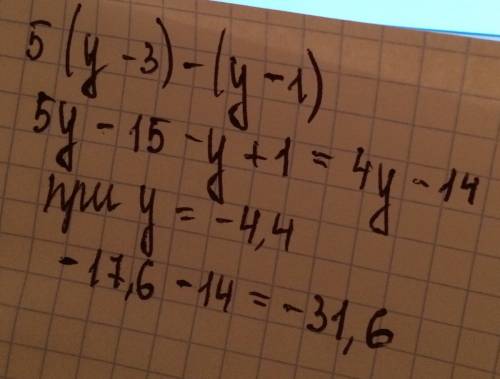 5 (y - 3) - (y - 1)
5y - 15 - y + 1 = 4y - 14
при y = -4,4
-17,6 - 14 = -31,6